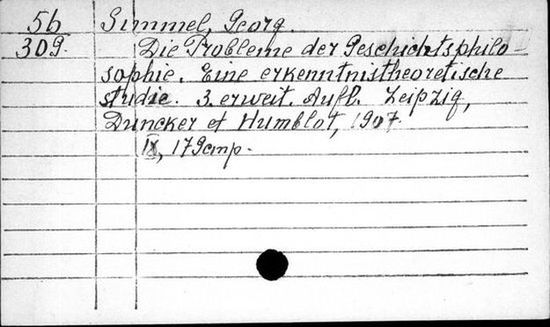 56 Simmel, Georg.
309. Die Probleme der Geschichtsphilo-
sophie. Eine erkenntnistheoretische
studie. 3. erweit. Aufl. Leipzig,
Duncker et Humblot, 1907.
IX, 179